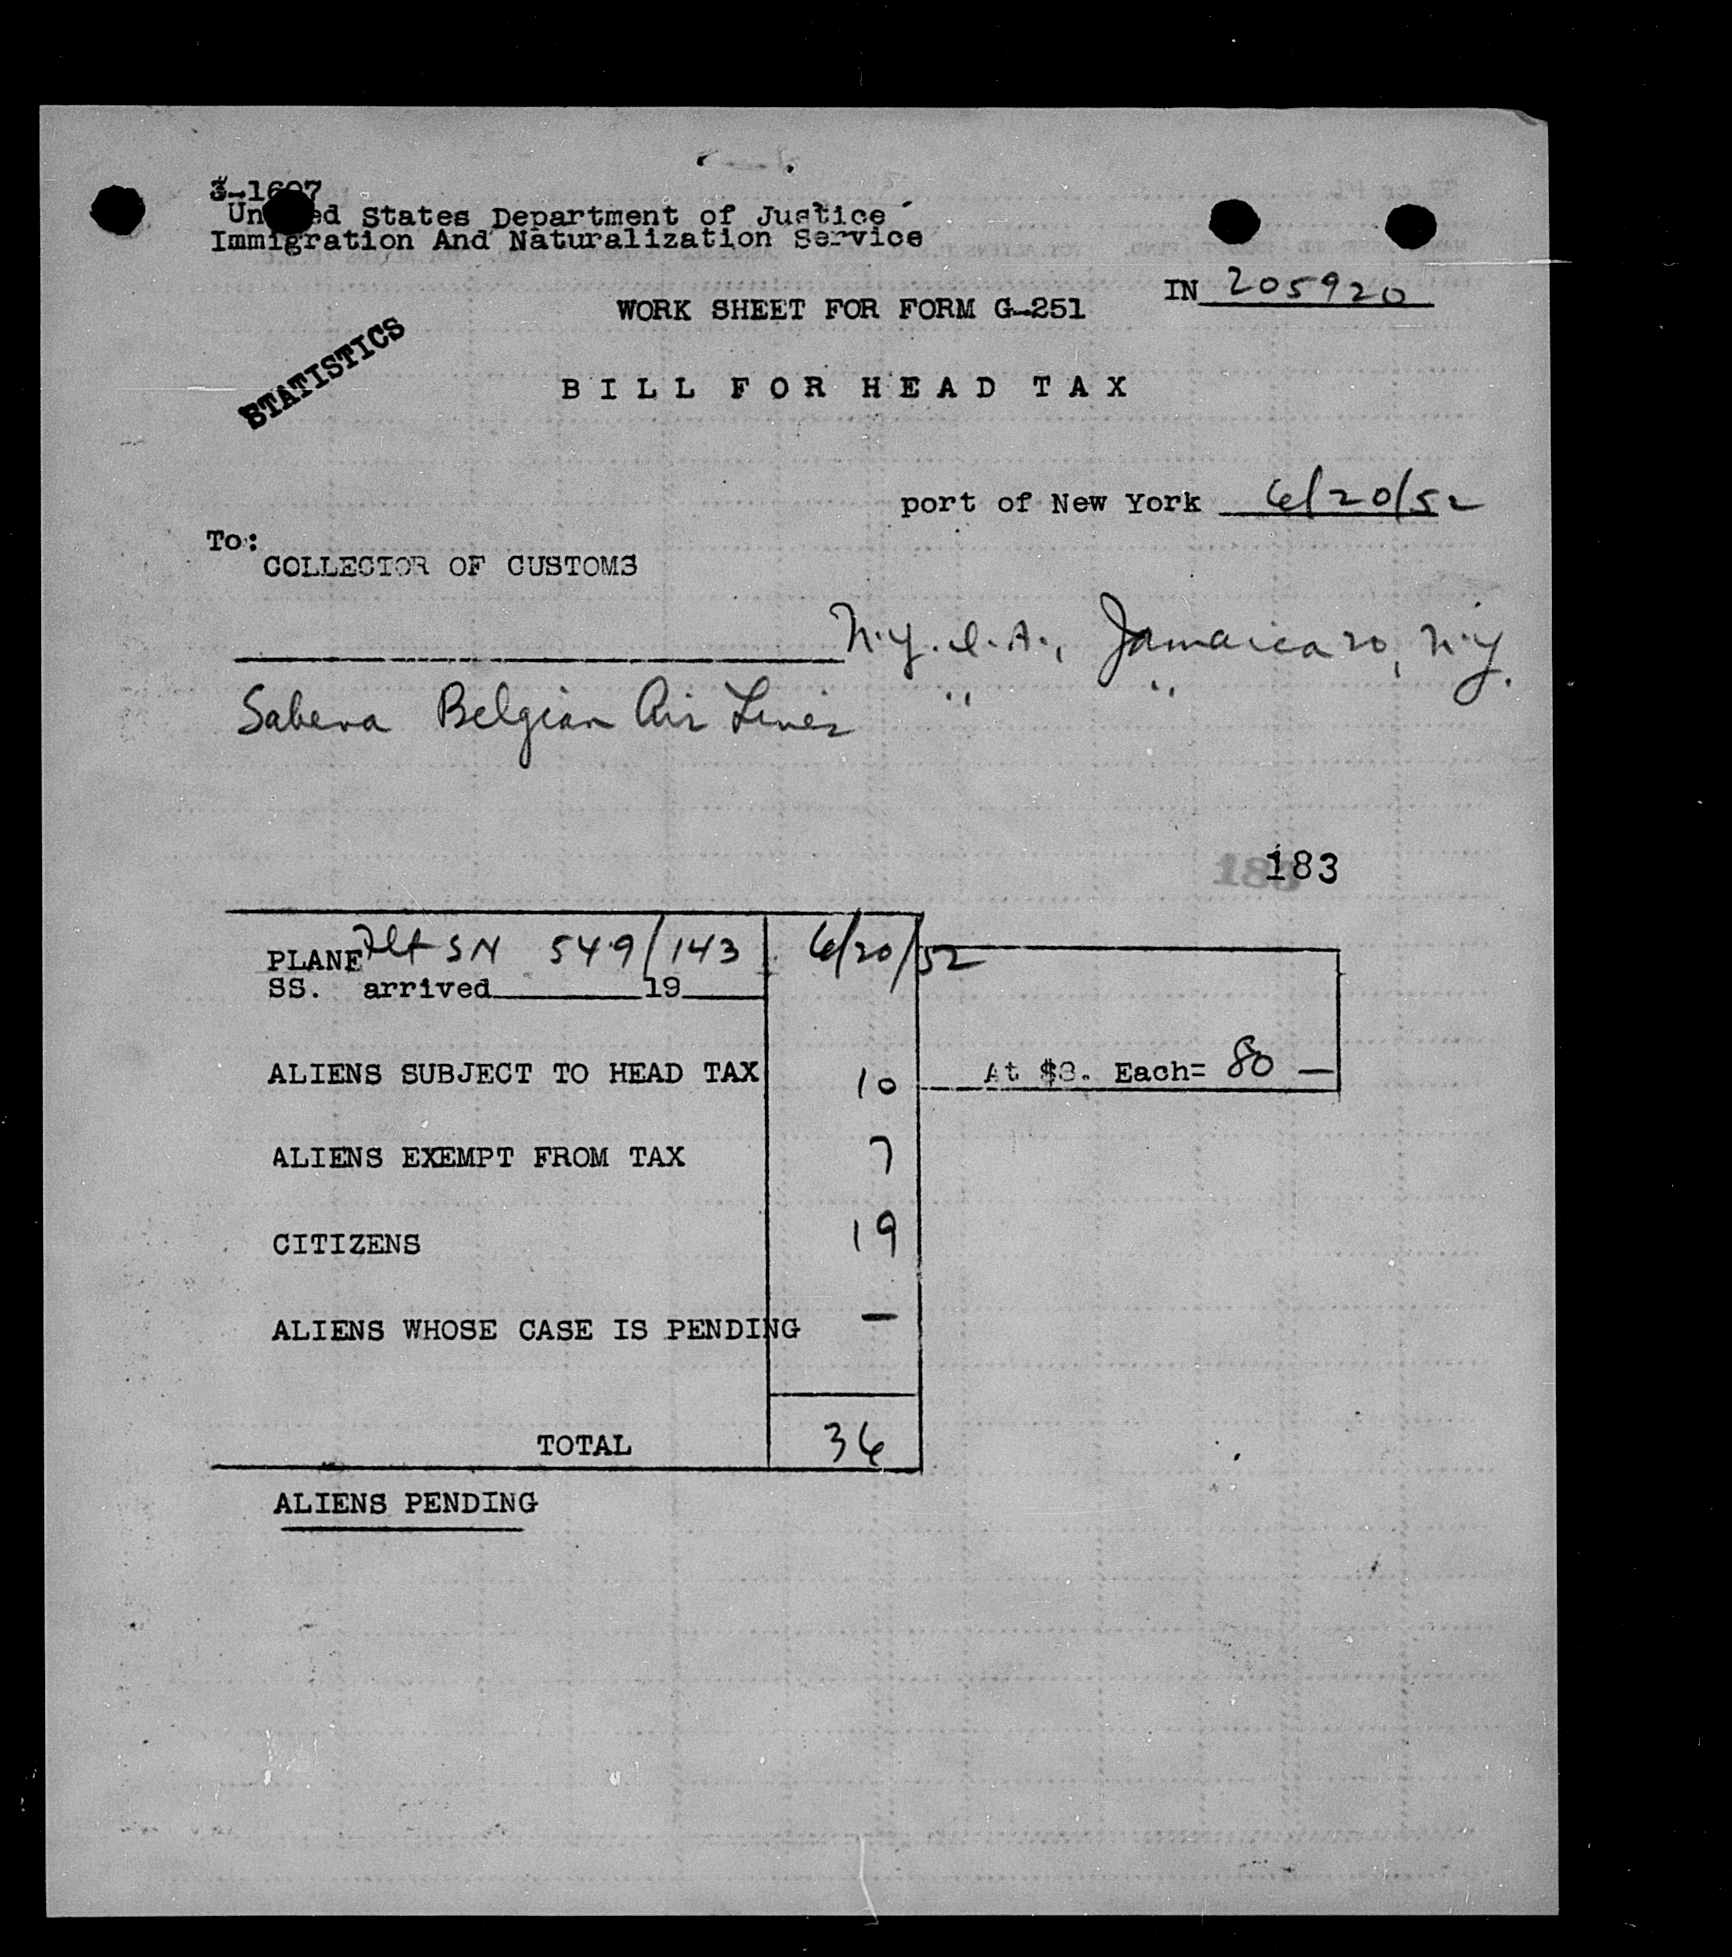 3-1607
United States Department of Justice
Immigration And Naturalization Service
IN 205920
WORK SHEET FOR FORM G-251
STATISTICS
BILL FOR HEAD TAX
port of New York 6/20/52
To:
COLLECTOR OF CUSTOMS
N.Y.I.A., Jamaica 20, N.Y.
Sabena Belgian Air Lines " "
183
PLANE Flt SN 549/143 6/20/52
SS. arrived 19
ALIENS SUBJECT TO HEAD TAX 10 At $8. Each= 80 —
ALIENS EXEMPT FROM TAX 7
CITIZENS 19
ALIENS WHOSE CASE IS PENDING —
TOTAL 36
ALIENS PENDING